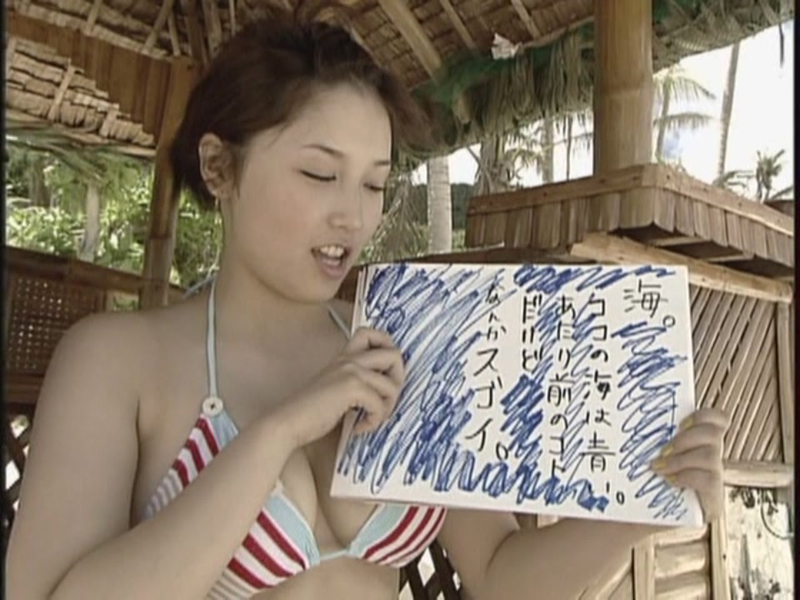 海。
ココの海は青い。
あたり前のコト
だけど
なんかスゴイ。